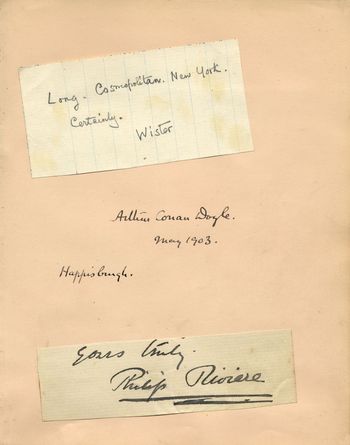 Long. Cosmopolitan. New York.
Certainly.
Wister
Arthur Conan Doyle.
May 1903.
Happisburgh.
Yours truly.
Philip Riviere